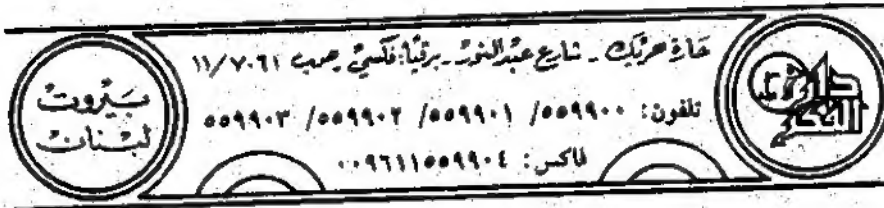 حارة حريك - شارع عبد النور - برقياً: فكسي ص.ب ١١/٧٠٦١
تلفون: ٥٥٩٩٠٠/ ٥٥٩٩٠١/ ٥٥٩٩٠٢/ ٥٥٩٩٠٣
فاكس: ٠٠٩٦١١٥٥٩٩٠٤
دار الفكر
بيروت
لبنان